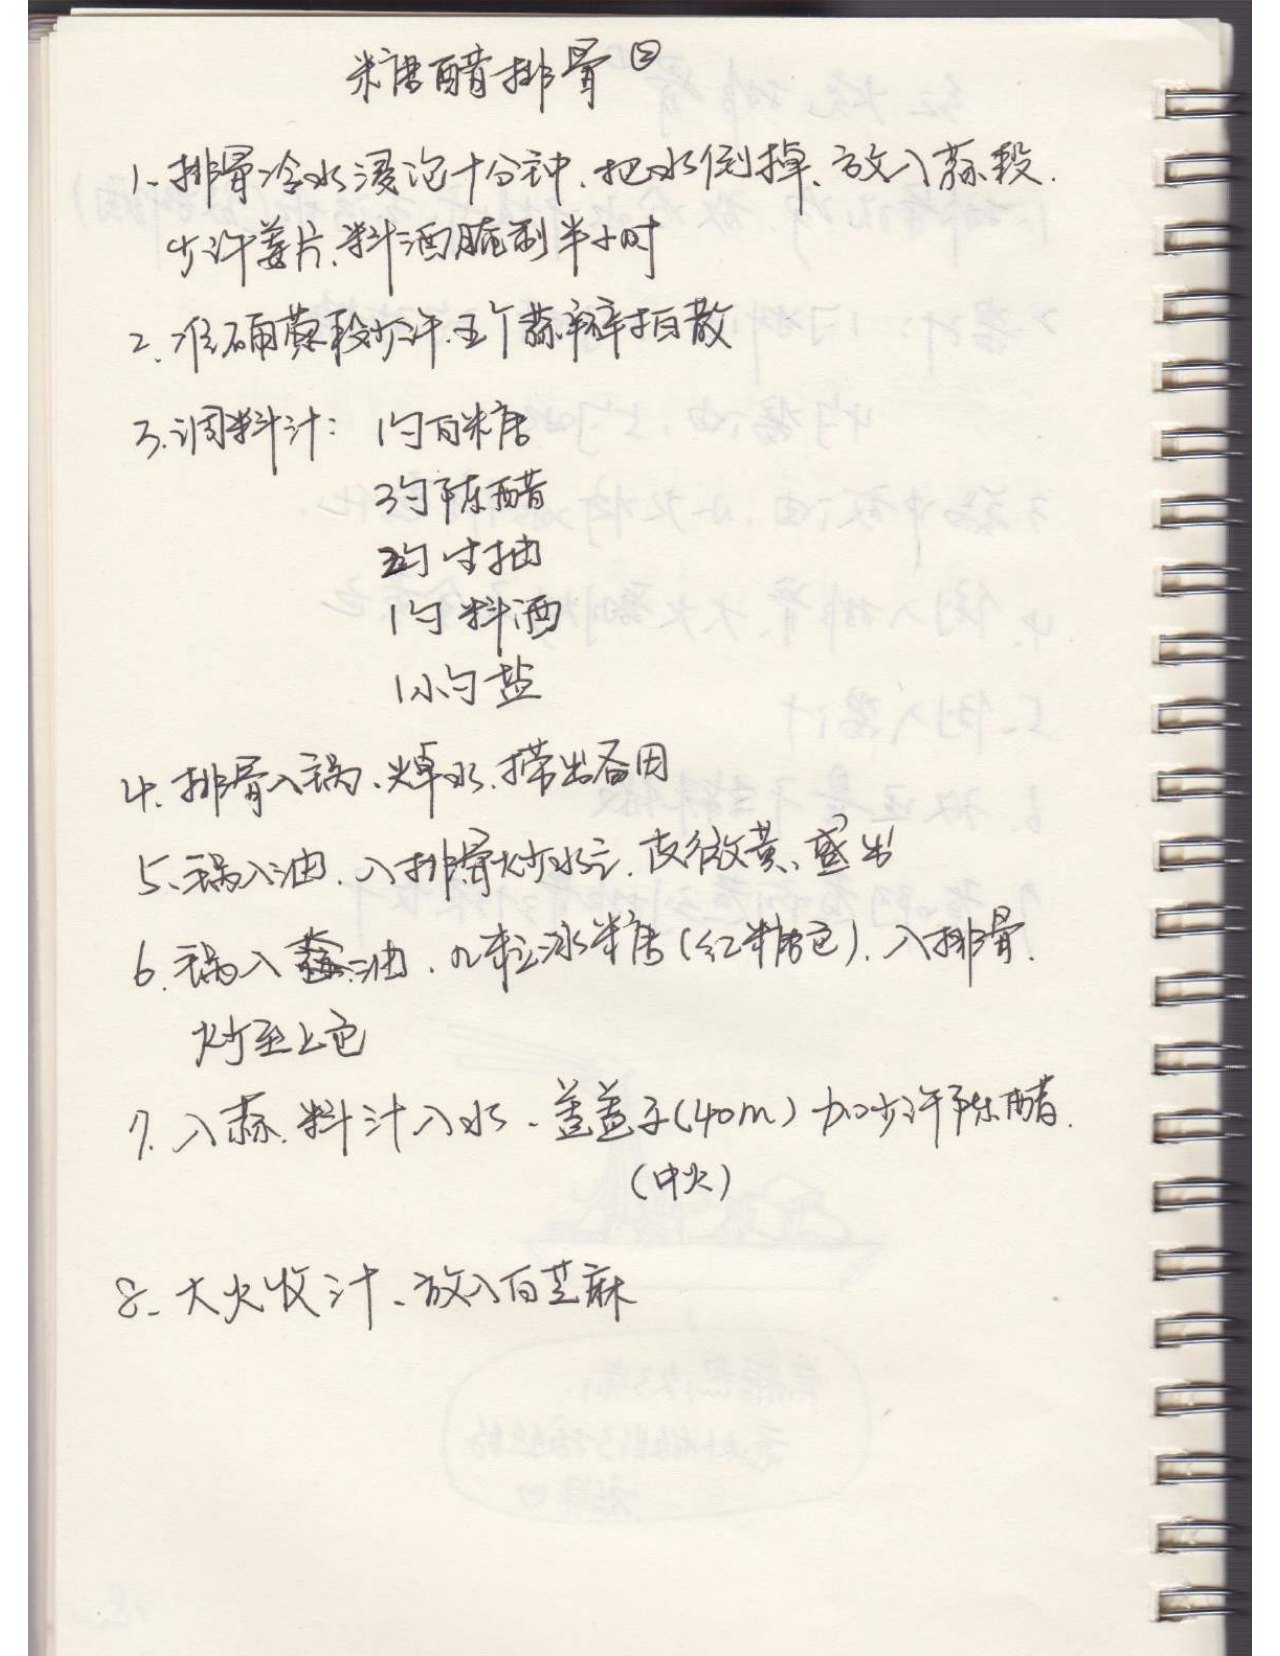 糖醋排骨②
1、排骨冷水浸泡十分钟,把水倒掉、放入蒜段.
少许姜片、料酒腌制半小时
2、准备葱段少许、五个蒜瓣拍散
3、调料汁: 1勺白糖
3勺陈醋
2勺生抽
1勺料酒
1小勺盐
4、排骨入锅、焯水、捞出备用
5、锅入油、入排骨炒水、皮微黄、盛出
6、锅入油、几粒冰糖(红糖色)、入排骨.
炒至上色
7、入蒜、料汁入水、盖盖子(40m)加少许陈醋.
(中火)
8、大火收汁、放入白芝麻